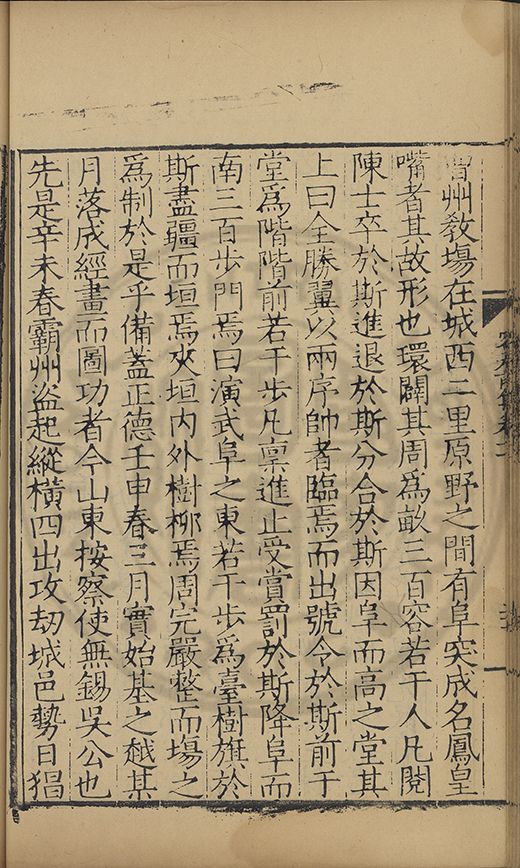 曹州教場在城西二里原野之間有阜突成名鳳皇
嘴者其故形也環闢其周為畝三百容若干人凡閱
陳士卒於斯進退於斯分合於斯因阜而高之堂其
上曰全勝翼以兩序帥者臨焉而出號令於斯前于
堂為階階前若干步凡稟進止受賞罰於斯降阜而
南三百步門焉曰演武阜之東若干步為臺樹旗於
斯盡疆而垣焉夾垣內外樹柳焉周完嚴整而場之
為制於是乎備蓋正德壬申春三月實始基之越某
月落成經畫而圖功者今山東按察使無錫吳公也
先是辛未春霸州盜起縱橫四出攻刼城邑勢日猖